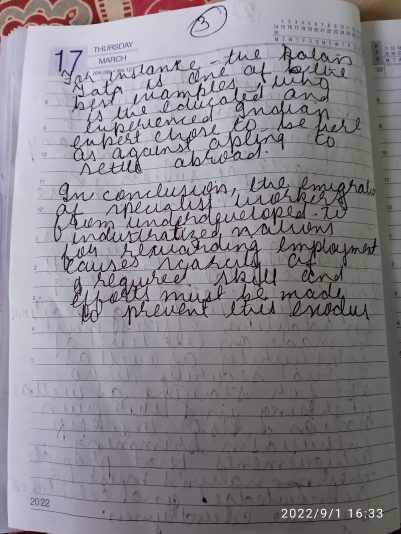 3
17 THURSDAY
MARCH
For instance the Ratan
Tata is one of the
best examples, living
is the educated and
experienced Indian
expert chose to be here
as against opting to
settle abroad.
In conclusion, the emigrat
of specialist workers
from underdeveloped to
industrialized nations
for rewarding employment
causes scarcity of
a required skill and
efforts must be made
to prevent this exodus
2022
2022/9/1 16:33